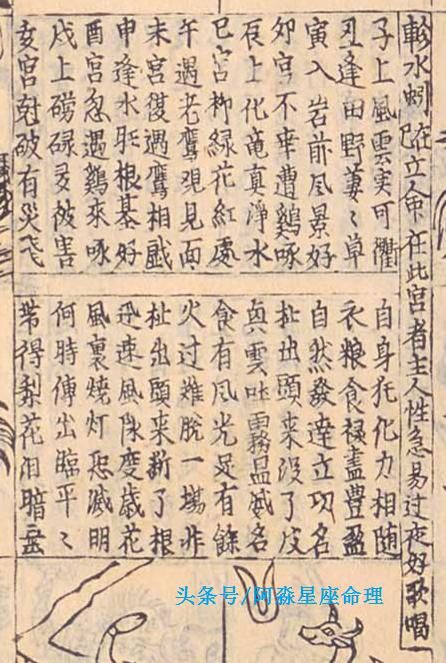 軫水蚓巳在立命在此宮者主人性急易过夜好歌唱
子上風雲实可衢
自身托化力相随
丑逢田野萋〻草
衣粮食禄盡豊盈
寅入岩前风景好
自然發達立功名
夘宮不幸遭鷄啄
扯出頭來没了皮
辰上化竜真淨水
與雲吐霧显威名
巳宮柳緑花紅處
食有风光足有餘
午遇老鷹覌見面
火过难脱一場非
未宮復遇鷹相戯
扯出頭来断了根
申逢水胜根基好
迅速風度歲花
酉宮忽遇鷄來啄
風裏焼灯恐滅明
戌上磅碌多被害
何時傳出平〻
亥宮尅破有災
带得梨花泪暗垂
头条号/阿淼星座命理